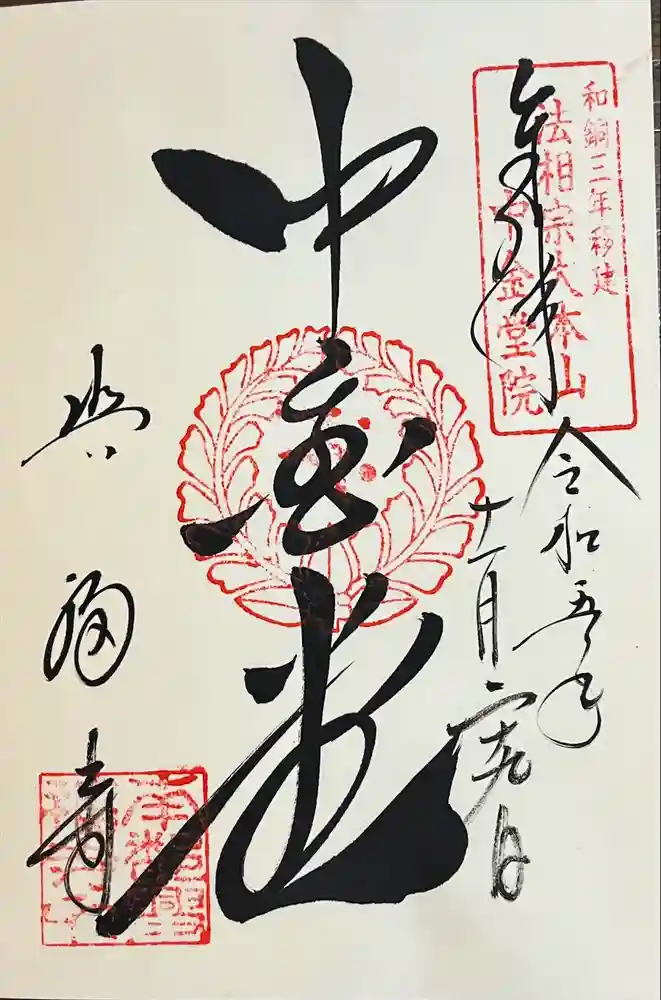 和銅三年移建
法相宗大本山
中金堂院
奉拝
令和五年
十一月二十九日
中金堂
興福寺